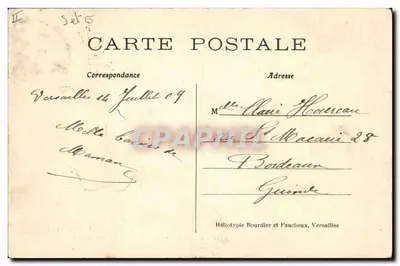 II
S et O
CARTE POSTALE
Correspondance
Adresse
Versailles 14 Juillet 09
Mille baisers de
Maman
Mdlle Marie Hourcau
rue St Macaire 28
Bordeaux
Gironde
CPARAMA
Héliotypie Bourdier et Faucheux, Versailles